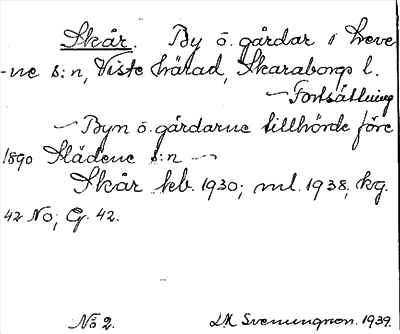 Skår. By o. gårdar i Leve-
-ne s:n, Viste härad, Skaraborgs l.
— Fortsättning
— Byn o. gårdarne tillhörde före
1890 Slädene s:n —
Skår kb. 1930; ml. 1938, kg.
42 NO; G. 42.
No 2. Svenungson. 1939.